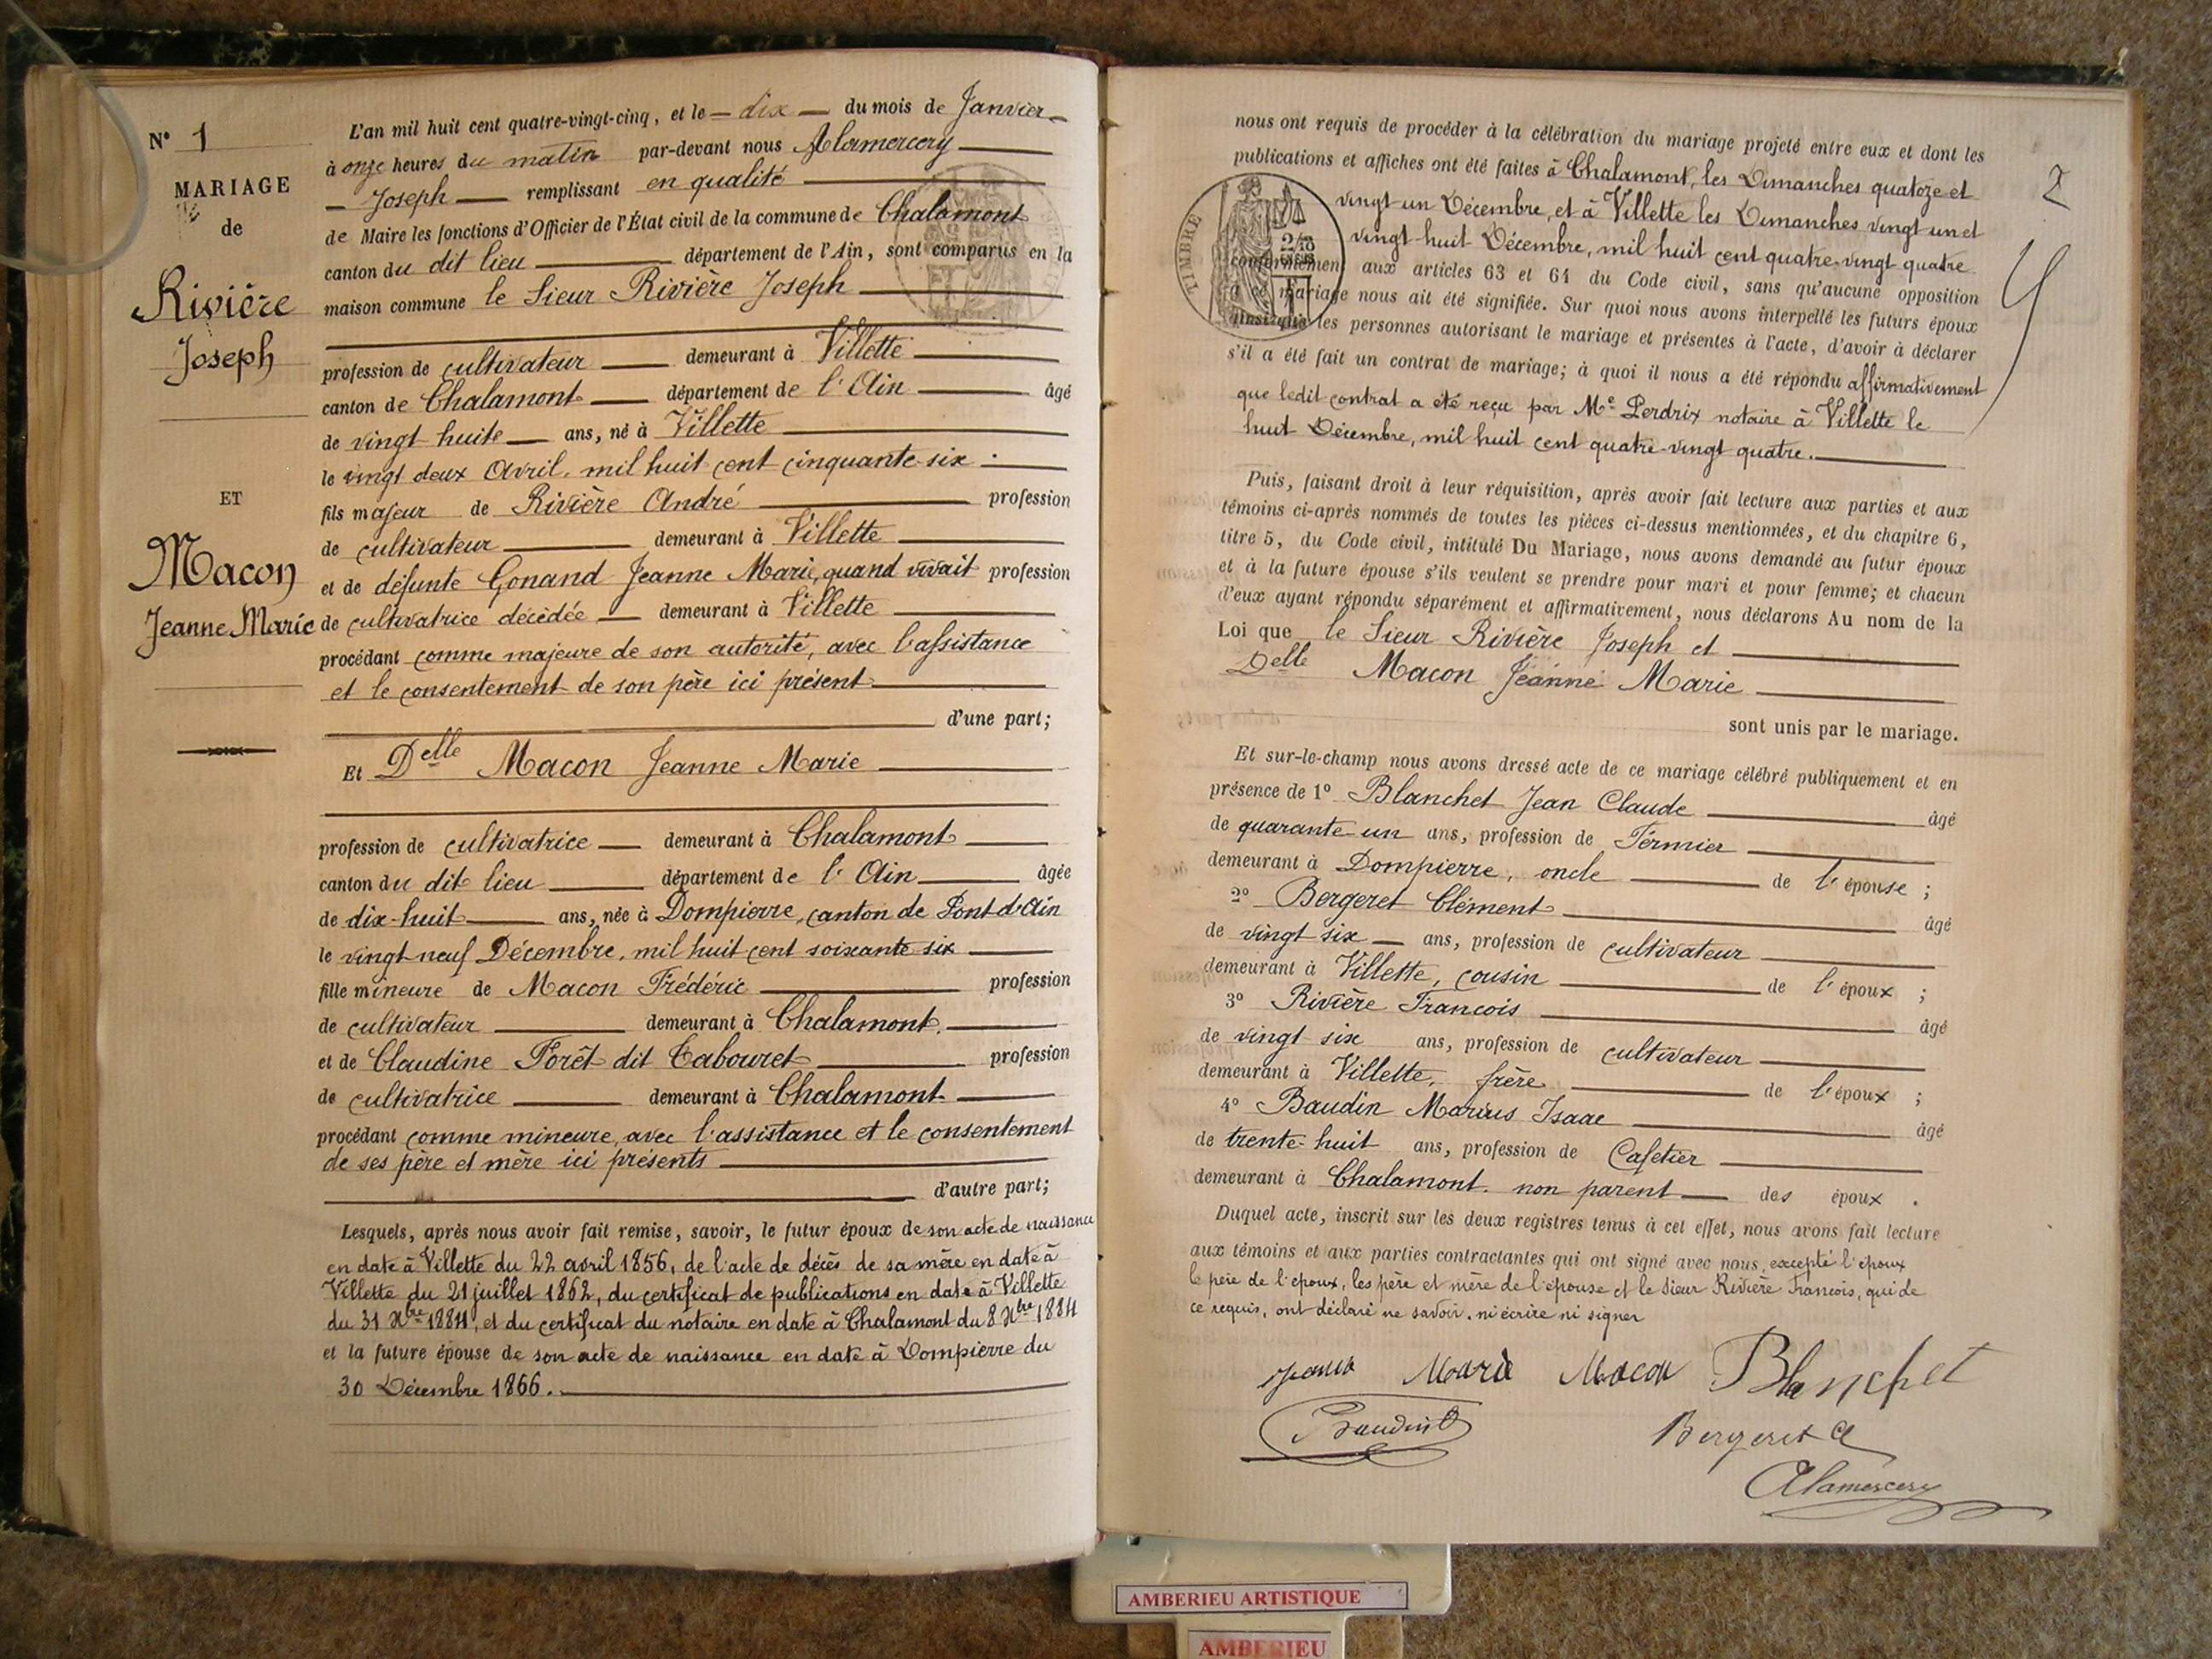 N° 1
MARIAGE
de
Rivière
Joseph
ET
Macon
Jeanne Marie
L'an mil huit cent quatre-vingt-cinq, et le dix du mois de Janvier
à onze heures du matin par-devant nous Alamercery
Joseph remplissant en qualité
de Maire les fonctions d'Officier de l'État civil de la commune de Chalamont
canton du dit lieu département de l'Ain, sont comparus en la
maison commune le Sieur Rivière Joseph
profession de cultivateur demeurant à Villette
canton de Chalamont département de l'Ain âgé
de vingt huite ans, né à Villette
le vingt deux Avril, mil huit cent cinquante-six
fils majeur de Rivière André profession
de cultivateur demeurant à Villette
et de défunte Gonand Jeanne Marie, quand vivait profession
de cultivatrice décédée demeurant à Villette
procédant comme majeure de son autorité, avec l'assistance
et le consentement de son père ici présent
d'une part;
Et Delle Macon Jeanne Marie
profession de cultivatrice demeurant à Chalamont
canton du dit lieu département de l'Ain âgée
de dix-huit ans, née à Dompierre, canton de Pont d'Ain
le vingt neuf Décembre, mil huit cent soixante six
fille mineure de Macon Frédéric profession
de cultivateur demeurant à Chalamont.
et de Claudine Forêt dit Tabouret profession
de cultivatrice demeurant à Chalamont
procédant comme mineure, avec l'assistance et le consentement
de ses père et mère ici présents
d'autre part;
Lesquels, après nous avoir fait remise, savoir, le futur époux de son acte de naissance
en date à Villette du 22 avril 1856, de l'acte de décès de sa mère en date à
Villette du 21 juillet 1862, du certificat de publications en date à Villette
du 31 Xbre 1884, et du certificat du notaire en date à Chalamont du 8 Xbre 1884
et la future épouse de son acte de naissance en date à Dompierre du
30 Décembre 1866.
nous ont requis de procéder à la célébration du mariage projeté entre eux et dont les
publications et affiches ont été faites à Chalamont, les Dimanches quatoze et
vingt un Décembre, et à Villette les Dimanches vingt un et
vingt-huit Décembre, mil huit cent quatre-vingt quatre
TIMBRE
conformément aux articles 63 et 64 du Code civil, sans qu'aucune opposition
à ce mariage nous ait été signifiée. Sur quoi nous avons interpellé les futurs époux
ainsi que les personnes autorisant le mariage et présentes à l'acte, d'avoir à déclarer
s'il a été fait un contrat de mariage; à quoi il nous a été répondu affirmativement
que ledit contrat a été reçu par Me Perdrix notaire à Villette le
huit Décembre, mil huit cent quatre-vingt quatre.
Puis, faisant droit à leur réquisition, après avoir fait lecture aux parties et aux
témoins ci-après nommés de toutes les pièces ci-dessus mentionnées, et du chapitre 6,
titre 5, du Code civil, intitulé Du Mariage, nous avons demandé au futur époux
et à la future épouse s'ils veulent se prendre pour mari et pour femme; et chacun
d'eux ayant répondu séparément et affirmativement, nous déclarons Au nom de la
Loi que le Sieur Rivière Joseph et
Delle Macon Jeanne Marie
sont unis par le mariage.
Et sur-le-champ nous avons dressé acte de ce mariage célébré publiquement et en
présence de 1° Blanchet Jean Claude âgé
de quarante-un ans, profession de Fermier
demeurant à Dompierre, oncle de l'épouse ;
2° Bergeret Clément âgé
de vingt six ans, profession de cultivateur
demeurant à Villette, cousin de l'époux ;
3° Rivière Francois âgé
de vingt-six ans, profession de cultivateur
demeurant à Villette, frère de l'époux ;
4° Baudin Marius Isaac âgé
de trente-huit ans, profession de Cafetier
demeurant à Chalamont. non parent des époux .
Duquel acte, inscrit sur les deux registres tenus à cet effet, nous avons fait lecture
aux témoins et aux parties contractantes qui ont signé avec nous, excepté l'époux
le père de l'époux, les père et mère de l'épouse et le Sieur Rivière Francois, qui de
ce requis, ont déclaré ne savoir, ni écrire ni signer
Jeanne Marie Macon Blanchet
Baudin Bergeret C
Alamercery
2
AMBERIEU ARTISTIQUE
AMBERIEU